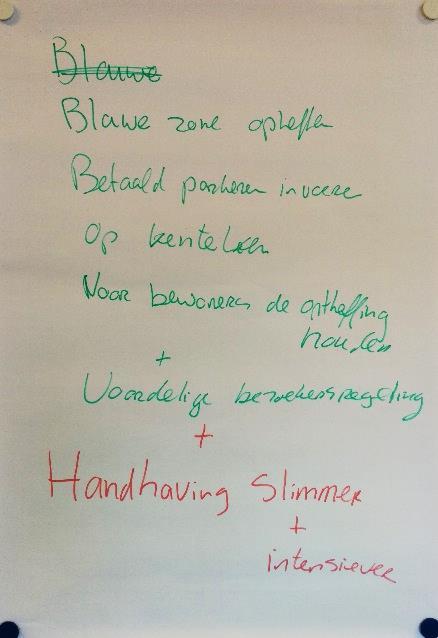 Blauwe
Blawe zone opheffen
Betaald parkeren invoeren
Op kenteken
Voor bewoners de ontheffing
houden
+
Voordelige bezoekersregeling
+
Handhaving Slimmer
+
intensiever